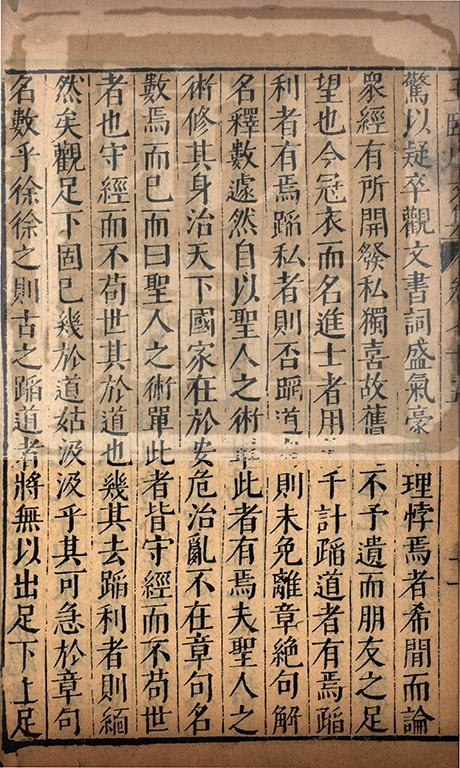 王臨川文集 卷七十五
驚以疑卒觀文書詞盛氣豪理悖焉者希間而論
衆經有所開發私獨喜故舊不予遺而朋友之足
望也今冠衣而名進士者用千計蹈道者有焉蹈
利者有焉蹈私者則否蹈道則未免離章絶句解
名釋數遽然自以聖人之術單此者有焉夫聖人之
術修其身治天下國家在於安危治亂不在章句名
數焉而已而曰聖人之術單此者皆守經而不苟世
者也守經而不苟世其於道也幾其去蹈利者則緬
然矣觀足下固已幾於道姑汲汲乎其可急於章句
名數乎徐徐之則古之蹈道者將無以出足下上足